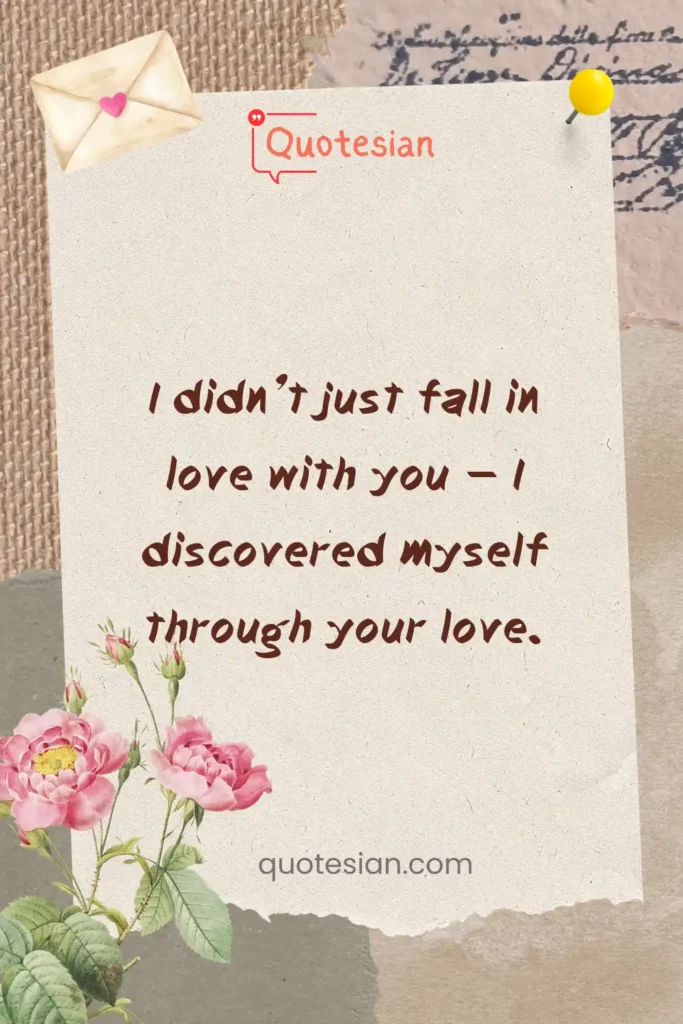 Quotesian
I didn't just fall in
love with you – I
discovered myself
through your love.
quotesian.com